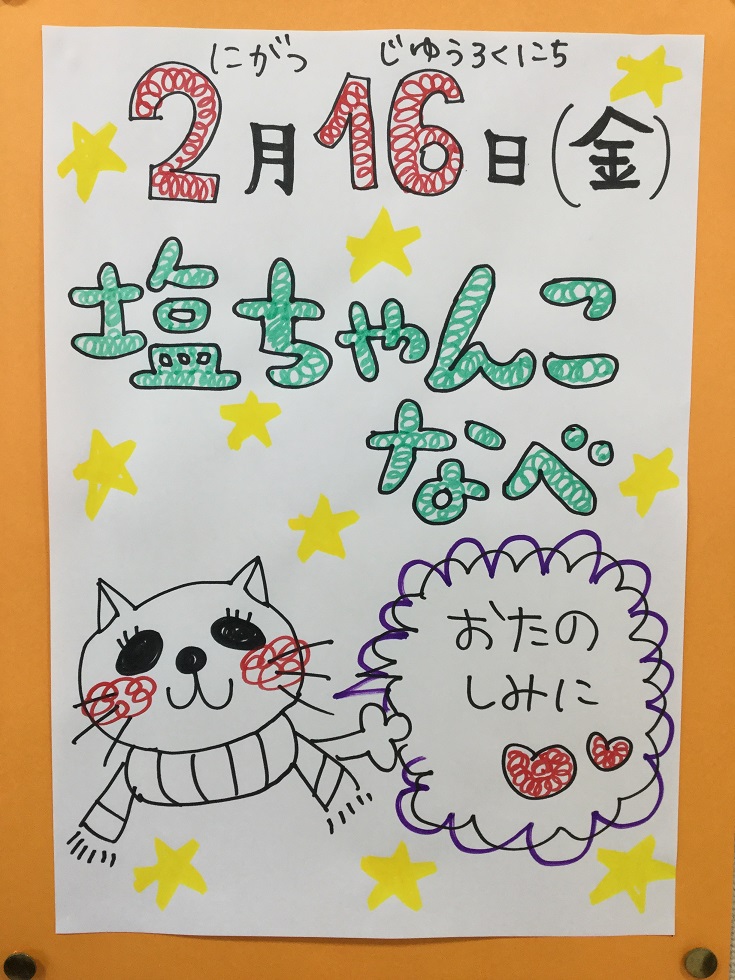 にがつ じゆうろくにち
2月16日(金)
塩ちゃんこ
なべ
おたの
しみに